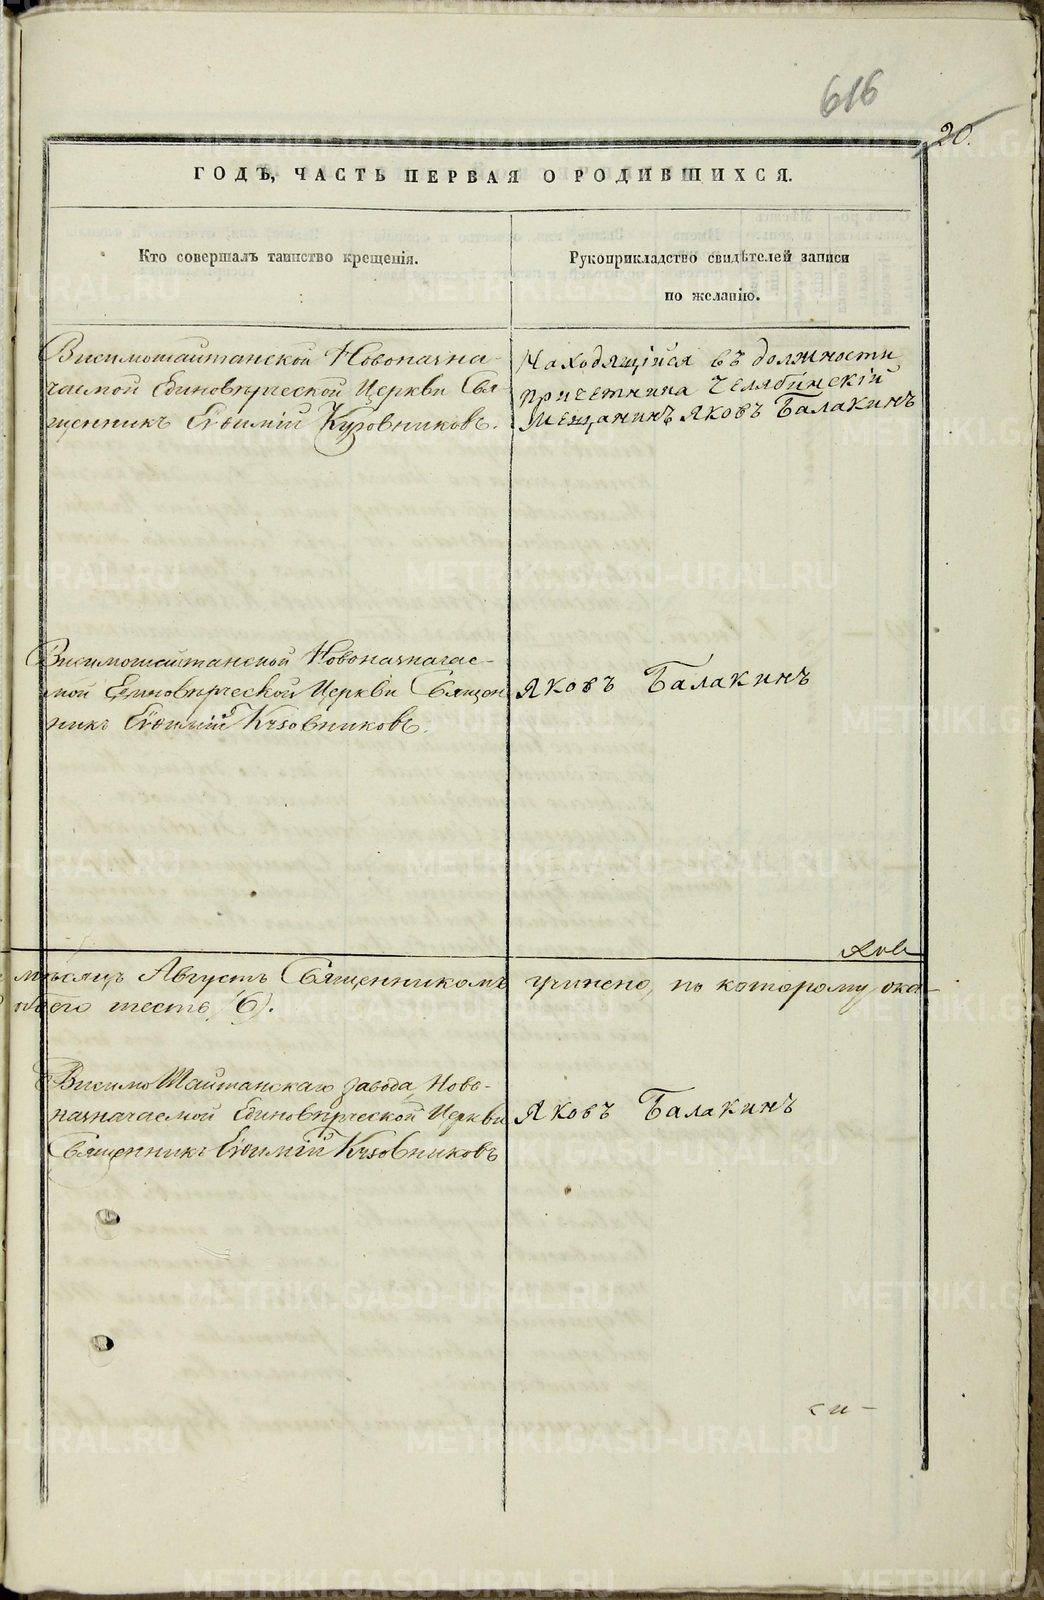 616
20.
ГОДЪ, ЧАСТЬ ПЕРВАЯ О РОДИВШИХСЯ.
Кто совершалъ таинство крещенія.
Рукоприкладство свидѣтелей записи
по желанію.
Висимошайтанской Новоназна-
чаемой Единовѣрческой Церкви Свя-
щенникъ Евѳимій Кузовниковъ.
Находящійся въ должности
причетника Челябинскій
Мещанинъ Яковъ Балакинъ
Висимошайтанской Новоназначае-
мой Единовѣрческой Церкви Священ
никъ Евѳимій Кузовниковъ.
Яковъ Балакинъ
мѣсяцъ Августъ Священникомъ учинено, по которому ока-
обоего шесть (6).
Висимо Шайтанскаго завода, Ново-
назначаемой Единовѣрческой Церкви
Священникъ Евѳимій Кузовниковъ
Яковъ Балакинъ
METRIKI.GASO-URAL.RU